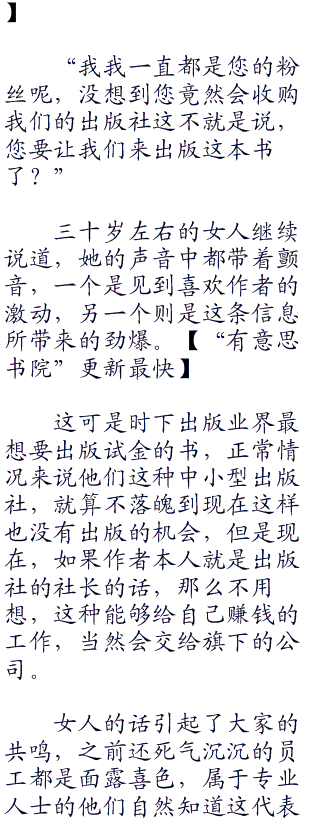 】
“我我一直都是您的粉
丝呢，没想到您竟然会收购
我们的出版社这不就是说，
您要让我们来出版这本书
了？”
三十岁左右的女人继续
说道，她的声音中都带着颤
音，一个是见到喜欢作者的
激动，另一个则是这条信息
所带来的劲爆。【“有意思
书院”更新最快】
这可是时下出版业界最
想要出版试金的书，正常情
况来说他们这种中小型出版
社，就算不落魄到现在这样
也没有出版的机会，但是现
在，如果作者本人就是出版
社的社长的话，那么不用
想，这种能够给自己赚钱的
工作，当然会交给旗下的公
司。
女人的话引起了大家的
共鸣，之前还死气沉沉的员
工都是面露喜色，属于专业
人士的他们自然知道这代表